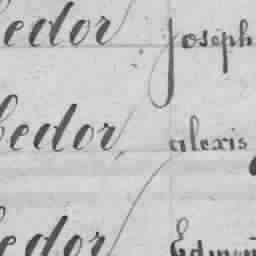 edor Joseph
edor, alexis
edor Edmon